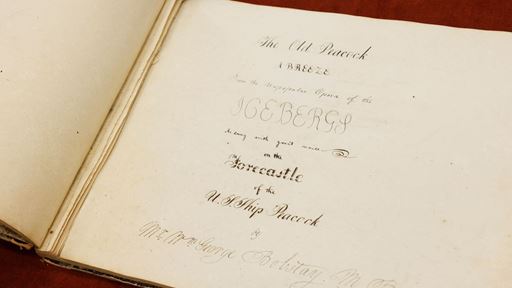 The Old Peacock
A BREEZE
From the Unpopular Opera of the
ICEBERGS
as sung with great
on the
Forecastle
of the
U.S. Ship Peacock
By
George